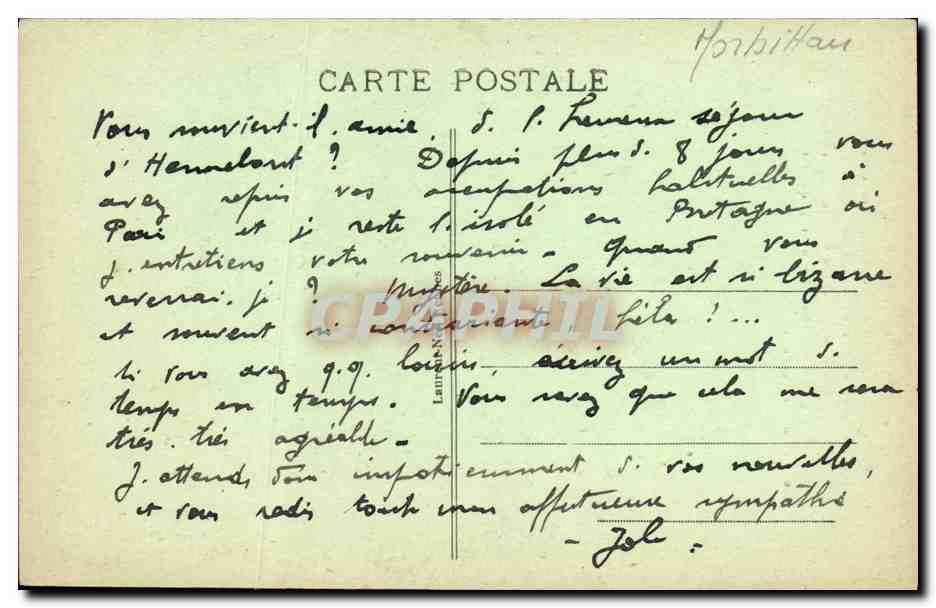 Morbihan
CARTE POSTALE
Vous souvient-il, amie, d. l'heureux séjour
d'Hennebont ? Depuis plus d. 8 jours vous
avez repris vos occupations habituelles à
Paris et je reste l'isolé en Bretagne où
j'entretiens votre souvenir - Quand vous
reverrai-je ? Mystère. La vie est si bizarre
et souvent si contrariante, hélas ! ...
Si vous avez q.q. loisirs, écrivez un mot d.
temps en temps. Vous savez que cela me sera
très, très agréable -
J'attends donc impatiemment d. vos nouvelles,
et vous redis toute mon affectueuse sympathie
Laurent-Nel
CPAPHIL